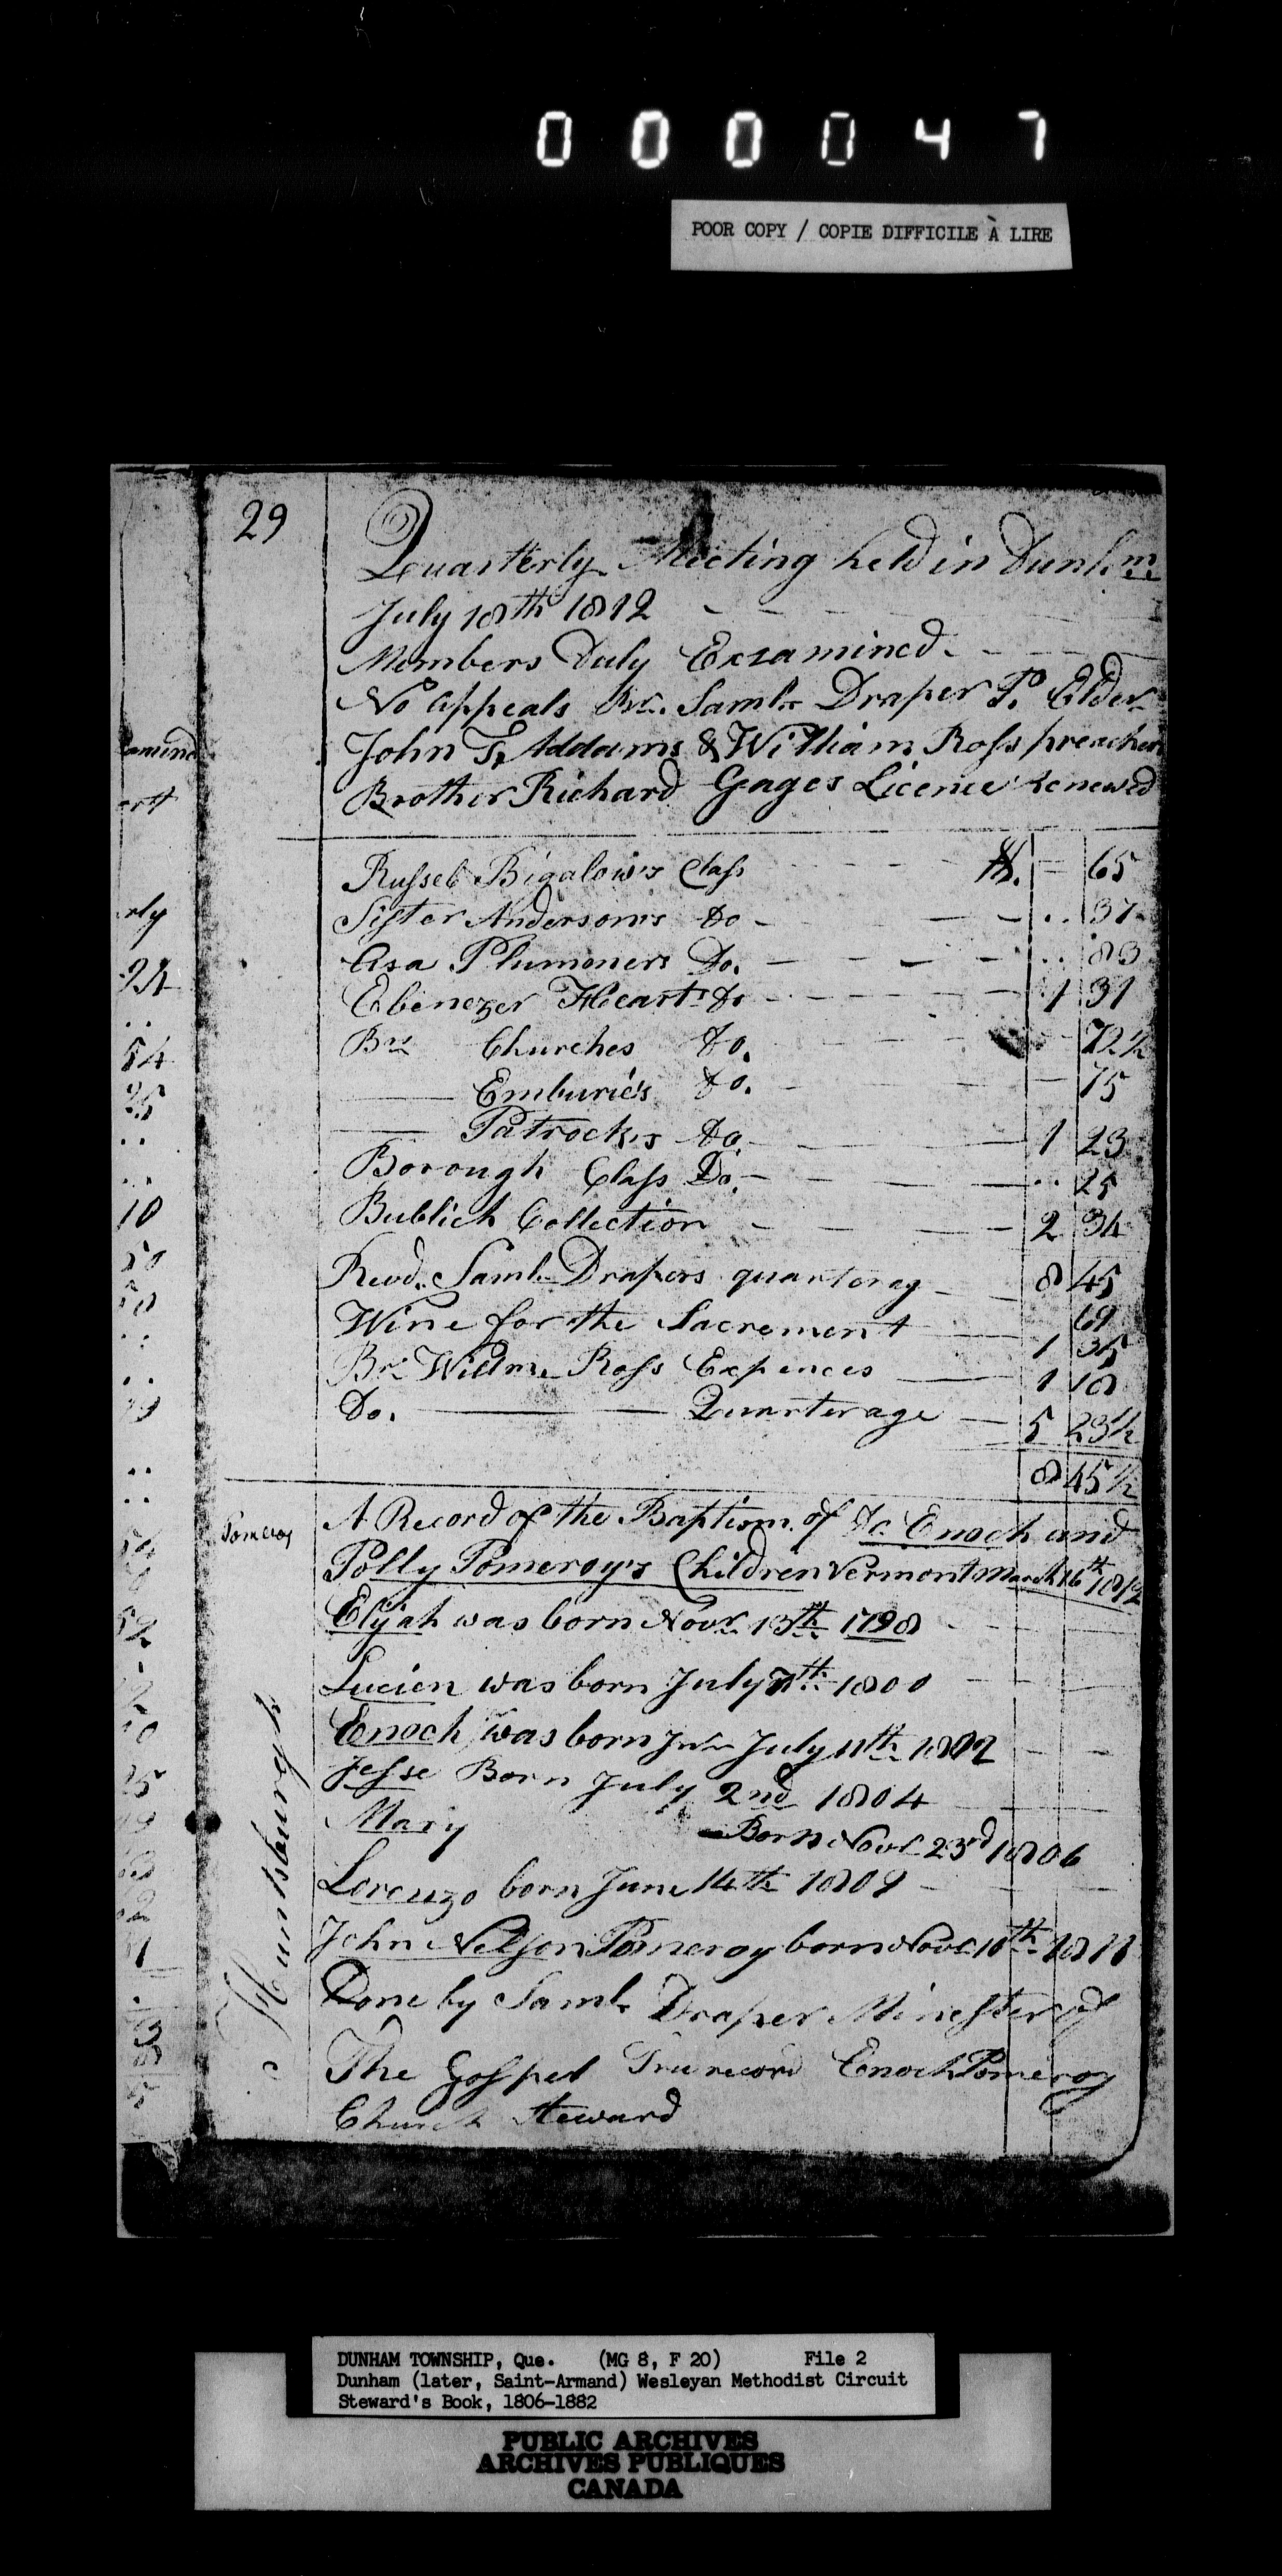 000047
POOR COPY / COPIE DIFFICILE À LIRE
29
Quarterly Meeting held in Dunhm
July 18th 1812
Members Duly Examined
No Appeals Br. Saml. Draper P. Elder
John T. Addams & William Ross preachers
Brother Richard Gages Licence renewed
Russel Bigalow's Class 65
Sister Anderson's Do - .. 37
Asa Plumoners Do. - .. 83
Ebenezer Heart's Do - 1 31
Br. Churches Do. 72½
Emburie's Do. - 75
Patrock's Do - 1 23
Borough Class Do. - .. 25
Bublich Collection - 2 34
Revd. Saml. Drapers quarterag 8 45
Wine for the Sacrement 69
1 35
Br. Willm. Ross Expences 1 18
Do. Quarterage 5 23½
8 45½
Pomeroy
A Record of the Baptism of Enoch and
Polly Pomeroy's Children Vermont March 16th 1812
Elijah was born Novr. 13th 1798
Lucien was born July 7th 1800
Enoch was born July 11th 1802
Jesse Born July 2nd 1804
Mary Born Novr 23rd 1806
Lorenzo born June 14th 1809
John Nelson Pomeroy born Novr 18th 1811
Done by Saml. Draper Minester of
The Gospel True record Enoch Pomeroy
Church Steward
Huntsburgh
amined
erly
24
..
54
25
..
..
10
50
DUNHAM TOWNSHIP, Que. (MG 8, F 20) File 2
Dunham (later, Saint-Armand) Wesleyan Methodist Circuit
Steward's Book, 1806-1882
PUBLIC ARCHIVES
ARCHIVES PUBLIQUES
CANADA